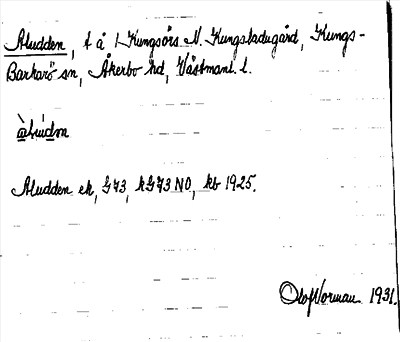 Aludden, t å 1 Kungsörs N. Kungsladugård, Kungs-
Barkarö sn, Åkerbo hd, Västmanl. l.
Aludden ek, G73, kG73 NO, kb 1925.
Olof Norman 1931.